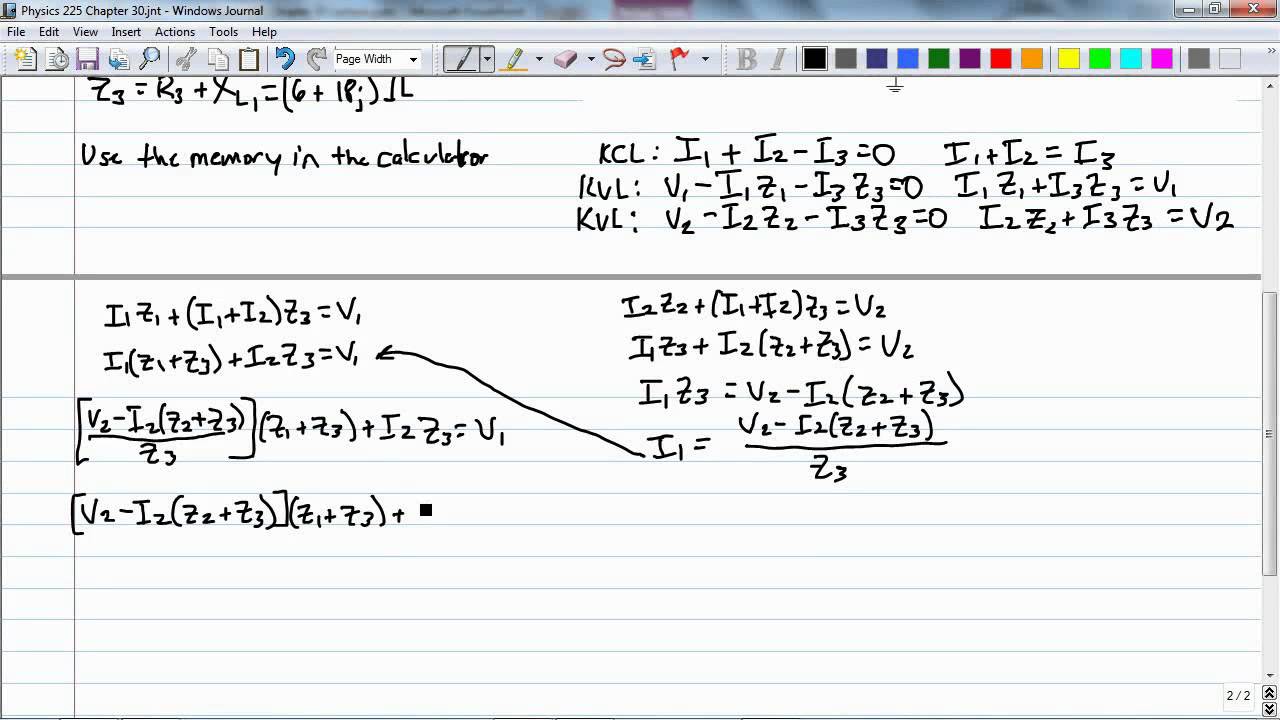 Physics 225 Chapter 30.jnt - Windows Journal
File Edit View Insert Actions Tools Help
Page Width
Z₃ = R₃ + X_L₁ = (6 + 18j) Ω
Use the memory in the calculator
KCL: I₁ + I₂ - I₃ = 0 I₁ + I₂ = I₃
KVL: V₁ - I₁Z₁ - I₃Z₃ = 0 I₁Z₁ + I₃Z₃ = V₁
KVL: V₂ - I₂Z₂ - I₃Z₃ = 0 I₂Z₂ + I₃Z₃ = V₂
I₁Z₁ + (I₁+I₂)Z₃ = V₁
I₁(Z₁+Z₃) + I₂Z₃ = V₁
[(V₂ - I₂(Z₂+Z₃))/Z₃](Z₁+Z₃) + I₂Z₃ = V₁
[V₂ - I₂(Z₂+Z₃)](Z₁+Z₃) +
I₂Z₂ + (I₁+I₂)Z₃ = V₂
I₁Z₃ + I₂(Z₂+Z₃) = V₂
I₁Z₃ = V₂ - I₂(Z₂+Z₃)
I₁ = (V₂ - I₂(Z₂+Z₃))/Z₃
2 / 2